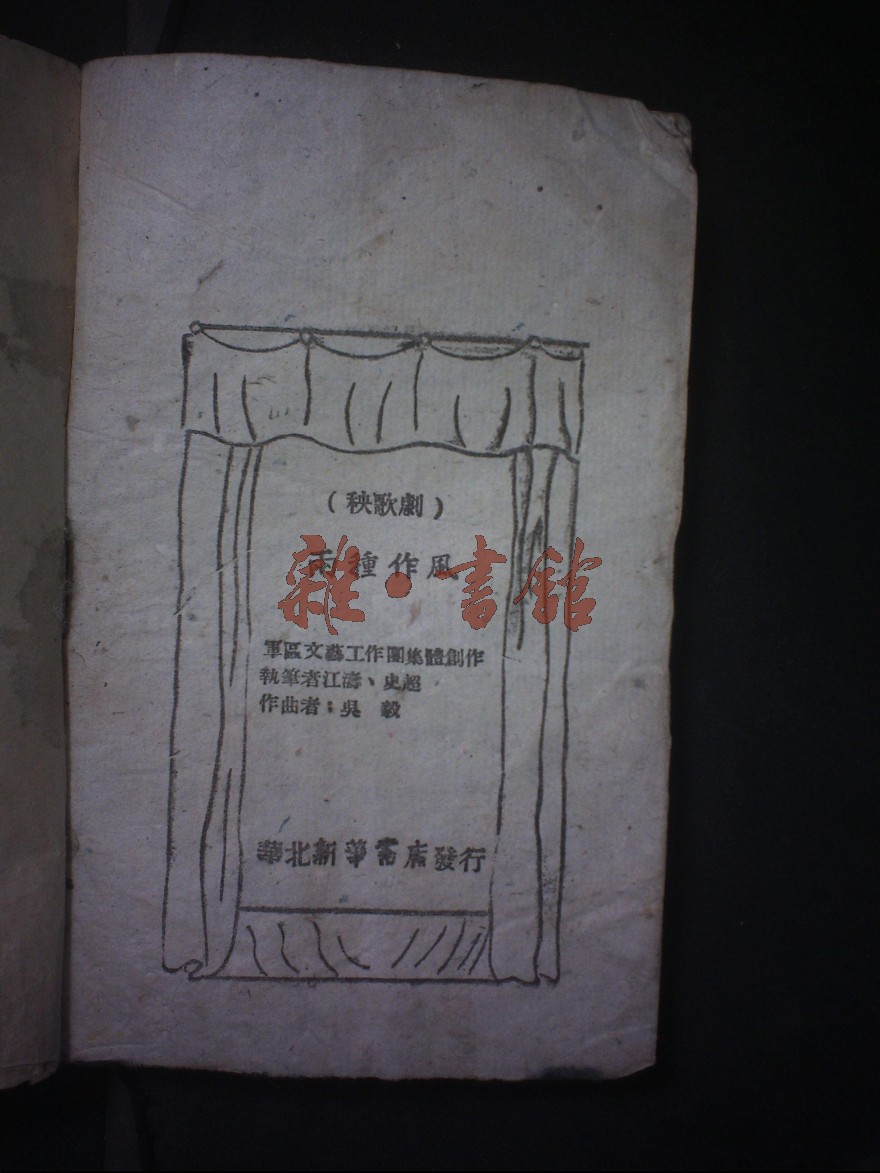 （秧歌劇）
兩種作風
雜·書館
軍區文藝工作團集體創作
執筆者江濤、史超
作曲者：吳　毅
華北新華書店發行